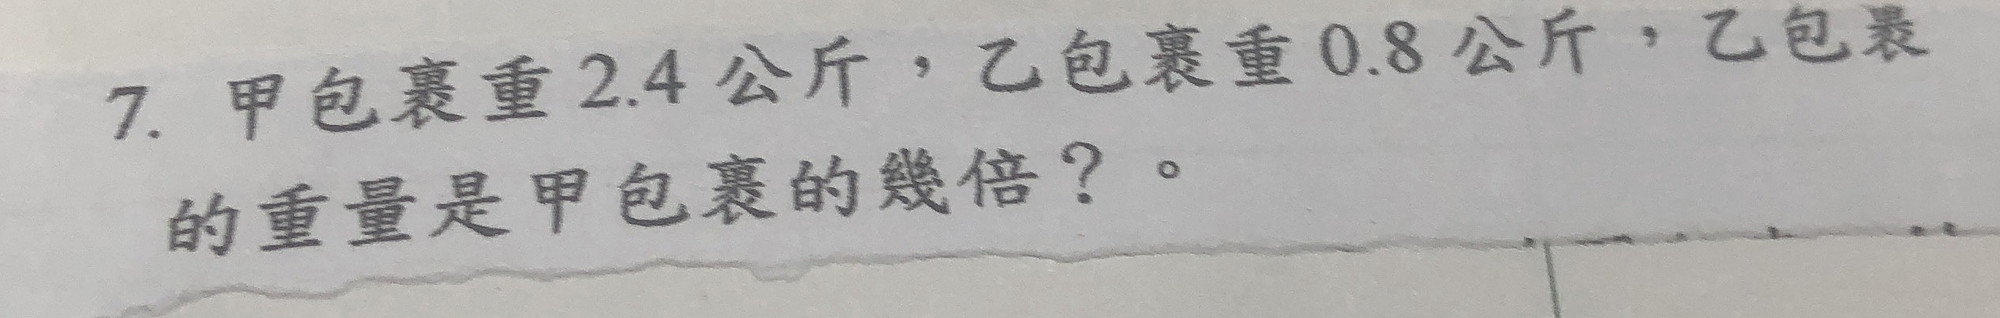 7. 甲包裹重 2.4 公斤，乙包裹重 0.8 公斤，乙包裹
的重量是甲包裹的幾倍？。